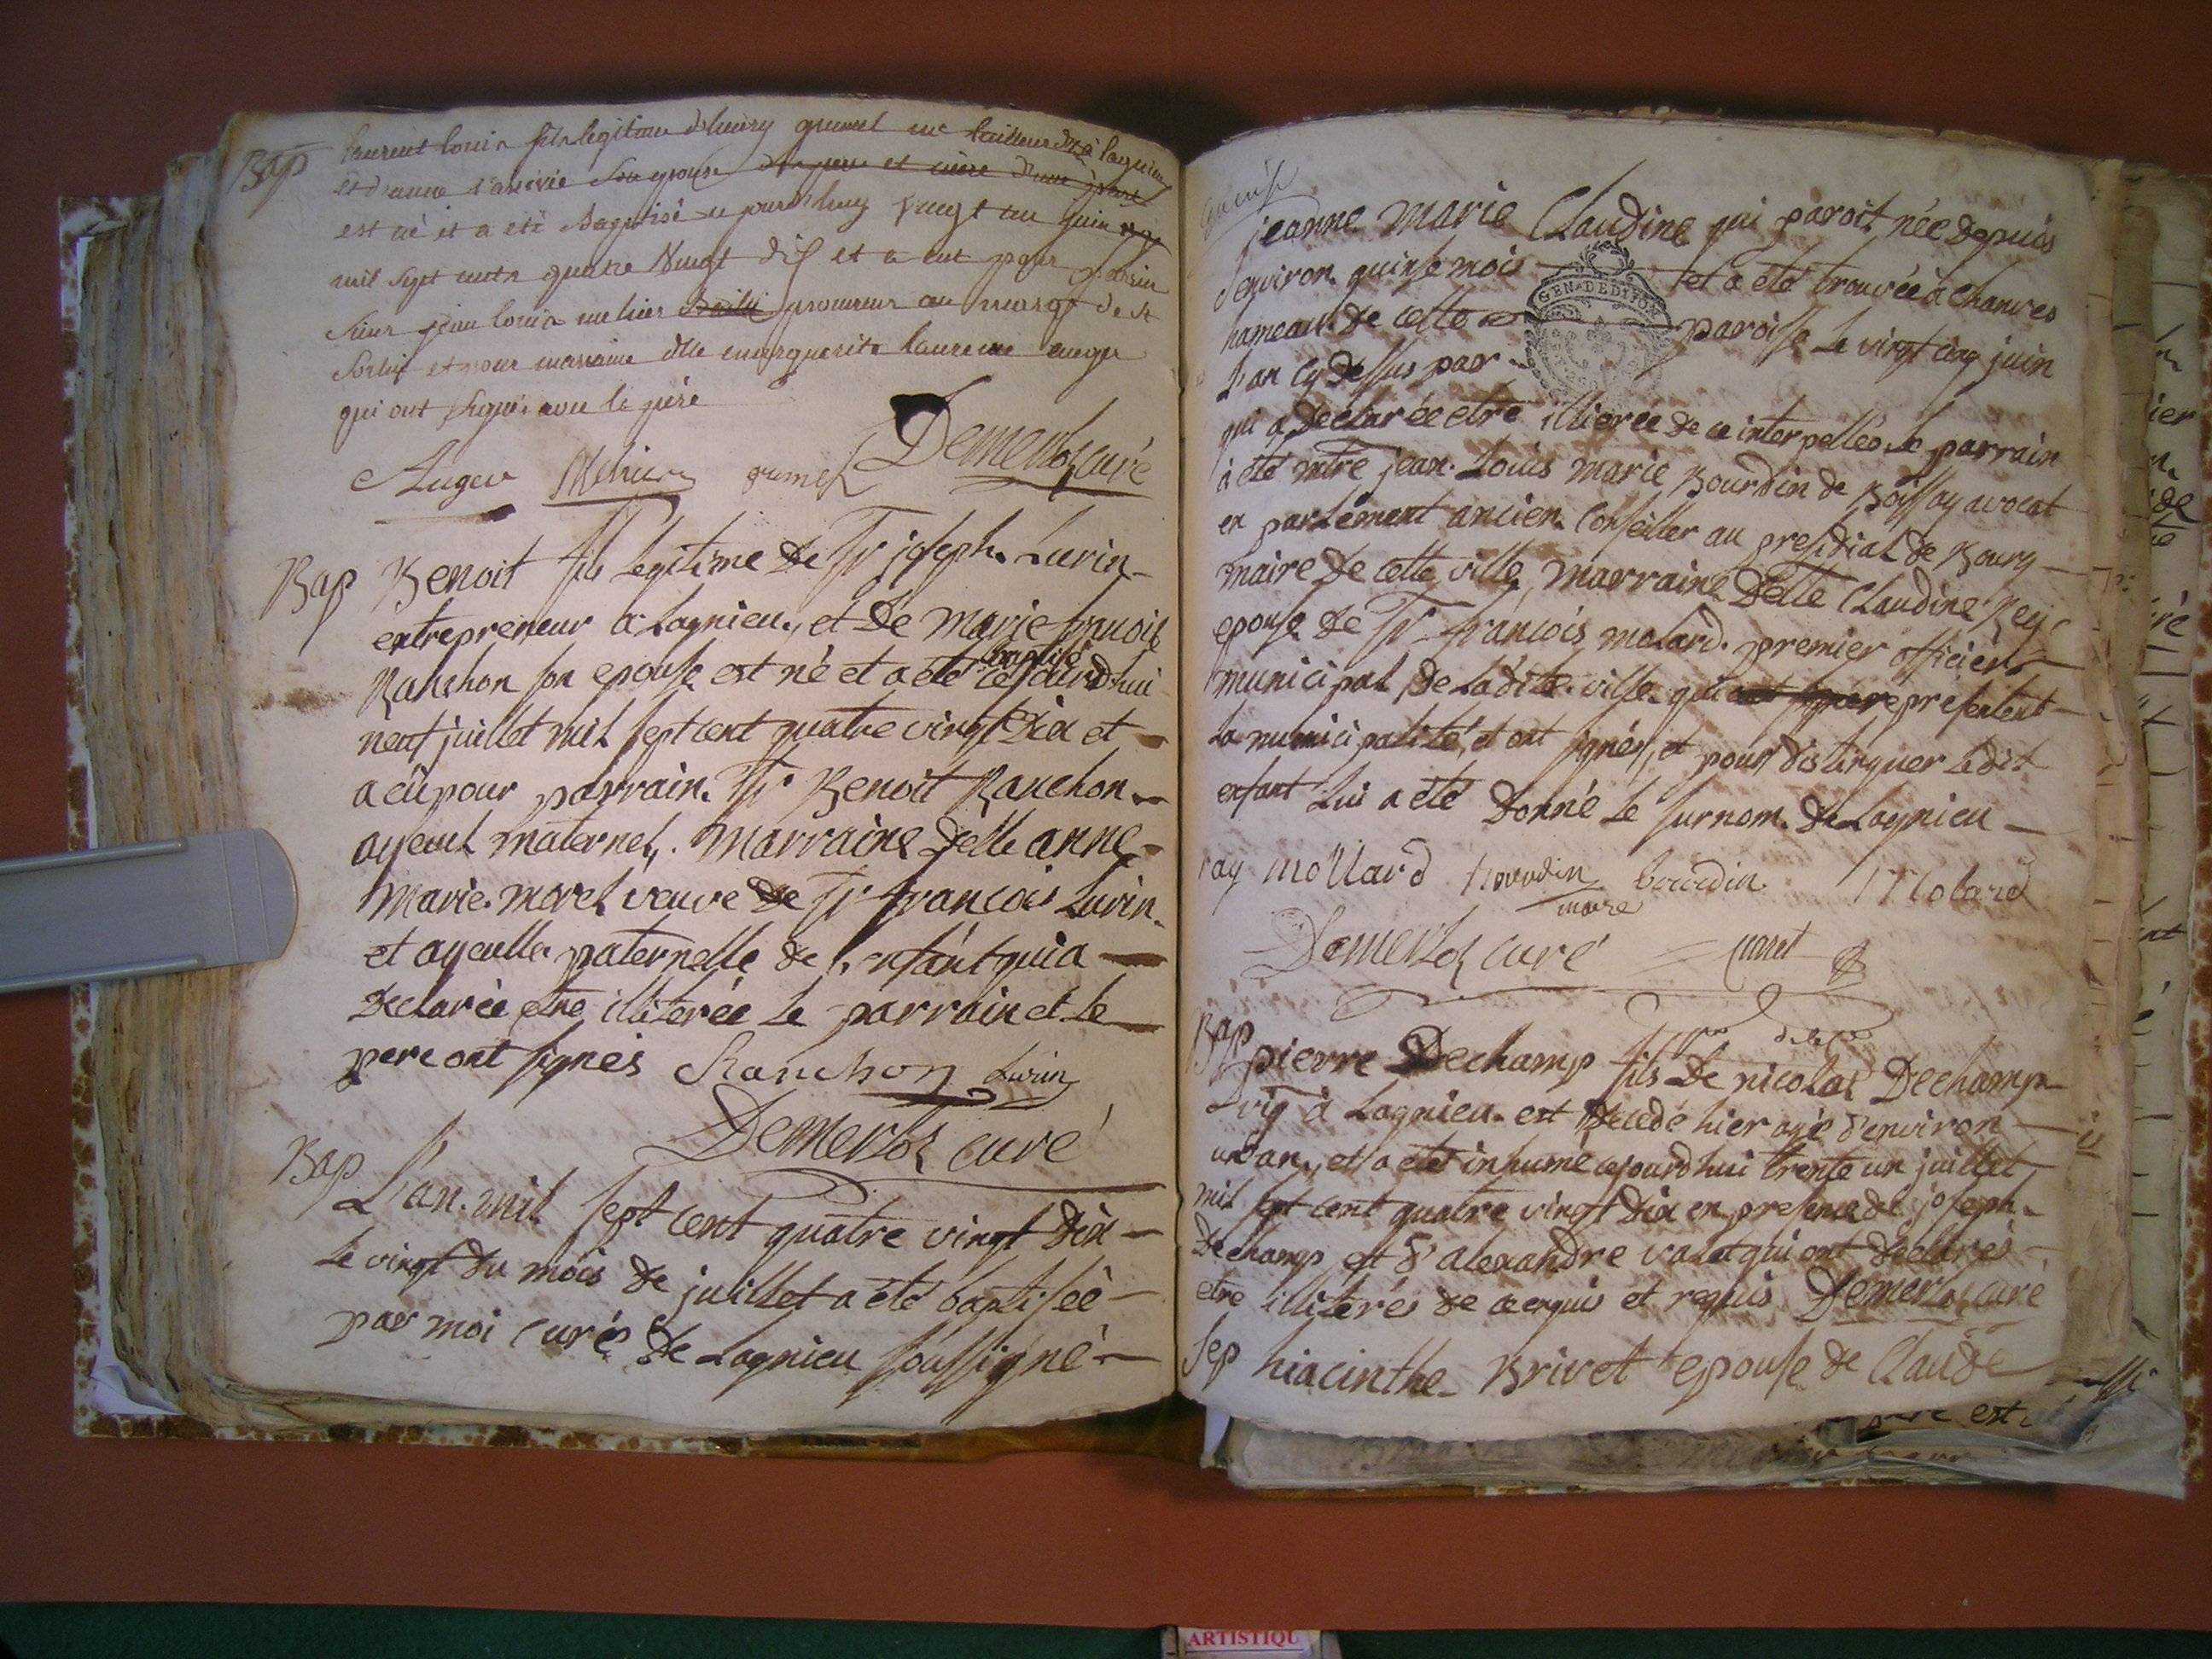 Bap
laurent louis fils legitime d'henry grumel me tailleur d'h à lagnieu
et d'anne son epouse
est né et a été Baptisé ce jourd'huy vingt un juin
mil sept cents quatre Vingt dix et a eut pour parrain
sieur jean louis melier procureur au de st
Sorlin et pour marraine dlle marguerite laurence auger
qui ont signé avec le père
Auger Melier grumel Demerloz curé
Bap Benoit fils Legitime de Sr joseph Lurin
entrepreneur a Lagnieu, et de marie francoise
Ranchon son epouse est né et a été baptisé cejourdhui
neuf juillet mil sept cent quatre vingt dix et
a eu pour parrain Sr Benoit Ranchon
ayeul maternel, marraine delle anne
marie morel veuve de Sr francois Lurin
et ayeulle paternelle de l'enfant qui a
declarée etre illiterée le parrain et le
pere ont signés Ranchon Lurin
Demerloz curé
Bap L'an mil sept cent quatre vingt dix
le vingt du mois de juillet a été baptisée
par moi curé de Lagnieu soussigné
jeanne marie Claudine qui paroit née depuis
d'environ quinse mois et a été trouvée à Chanves
hameau de cette paroisse le vingt cinq juin
L'an cy dessus par
qui a declarée etre illiterée de ce interpellée le parrain
à été mtre jean Louis marie Bourdin de Boissay avocat
en parlement ancien Conseiller au presidial de Bourg
maire de cette ville, marraine delle Claudine Rey
epouse de Sr francois molard premier officier
municipal de ladite ville qui representent
la municipalité, et ont signés, et pour distinguer ledit
enfant lui a été donné le surnom de Lagnieu
ray mollard bourdin bourdin Molard
maire
Demerloz curé
GEN. DE DIJON
Bap
pierre Dechamp fils de nicolas Dechamp
vig à Lagnieu est decedé hier agé d'environ
un an, et a été inhumé cejourdhui trente un juillet
mil sept cent quatre vingt dix en presence de joseph
Dechamp et d'alexandre valet qui ont declarés
etre illiterés de ce enquis et requis Demerloz curé
Sep hiacinthe Brivet epouse de Claude
ARTISTIQU